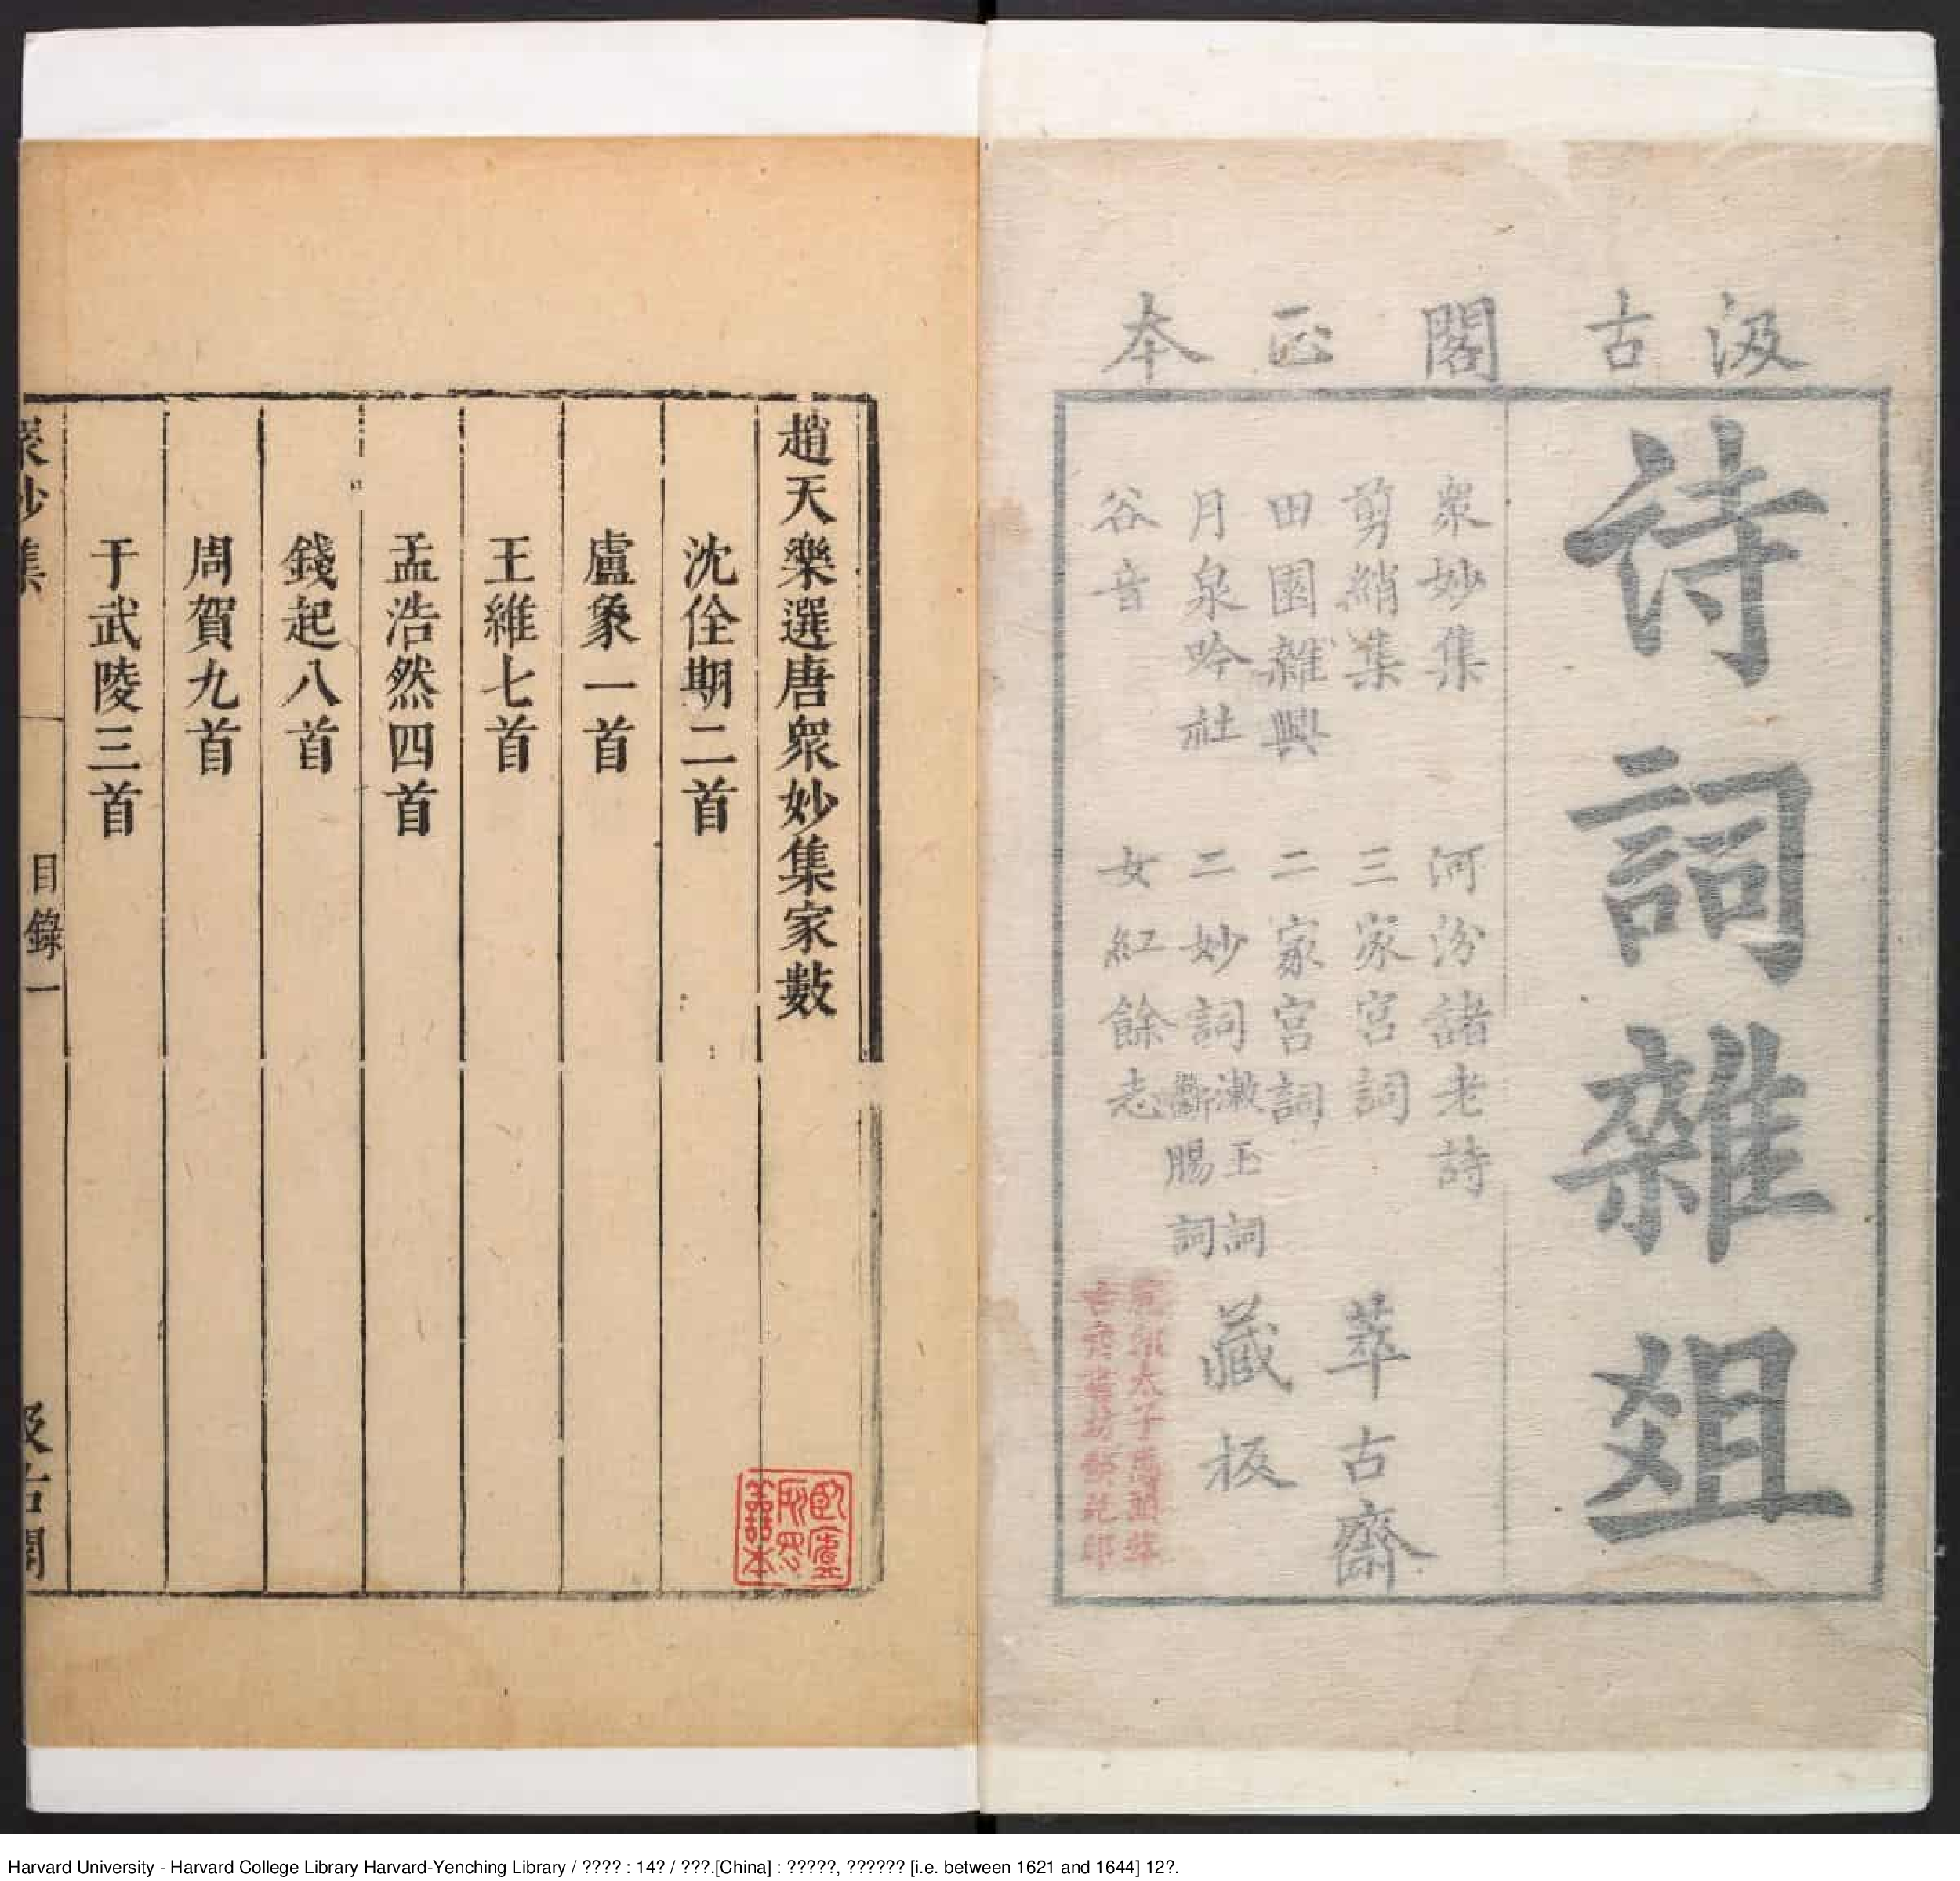 汲古閣正本
詩詞雜俎
衆妙集
剪綃集
田園雜興
月泉吟社
谷音
河汾諸老詩
三家宮詞
二家宮詞
二妙詞
漱玉詞
斷腸詞
女紅餘志
萃古齋
藏板
趙天樂選唐衆妙集家數
沈佺期二首
盧象一首
王維七首
孟浩然四首
錢起八首
周賀九首
于武陵三首
衆妙集
目錄一
汲古閣
Harvard University - Harvard College Library Harvard-Yenching Library / ???? : 14? / ???.[China] : ?????, ?????? [i.e. between 1621 and 1644] 12?.